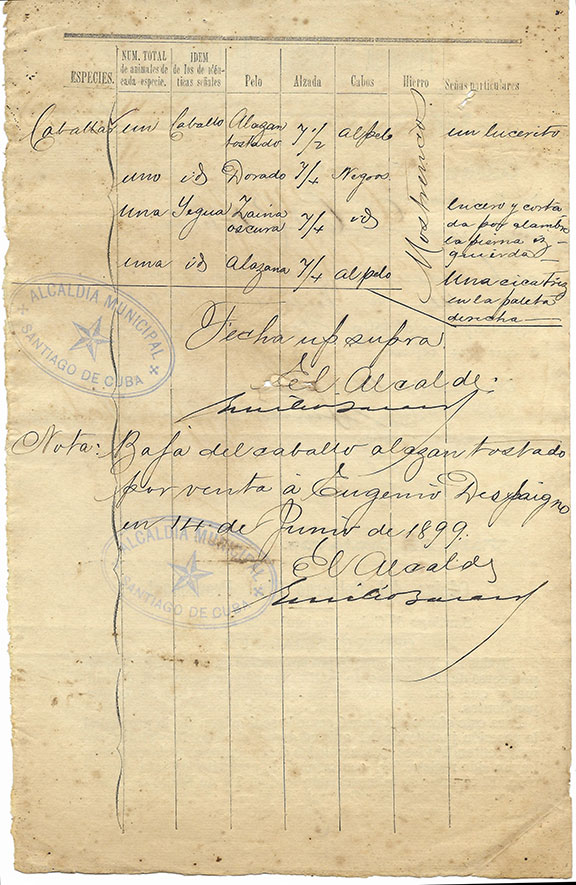 ESPECIES. NUM. TOTAL de animales de cada especie. IDEM de los de idénticas señales Pelo Alzada Cabos Hierro Señas particulares
Caballar un Caballo Alazan tostado 7/2 al pelo Mostrenco un lucerito
uno id Dorado 7/4 Negros
una Yegua Zaina oscura 7/4 id lucero y cortada por alambre la pierna izquierda
una id Alazana 7/4 al pelo Una cicatriz en la paleta derecha
Fecha up supra.
El Alcalde.
Emilio Bacard
Nota: Baja del caballo alazan tostado
por venta á Eugenio Despaigne
en 14 de Junio de 1899.
El Alcalde
Emilio Bacard
ALCALDIA MUNICIPAL
SANTIAGO DE CUBA
ALCALDIA MUNICIPAL
SANTIAGO DE CUBA